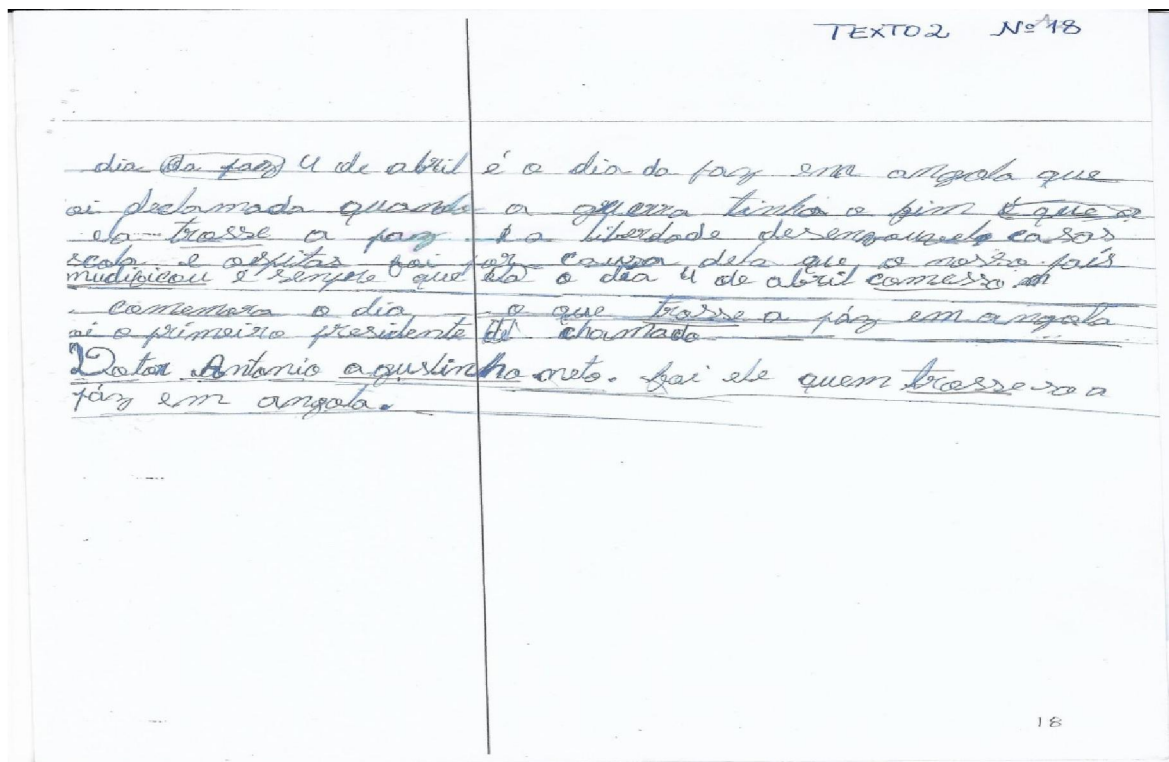 TEXTO 2 Nº 18
dia da paz 4 de abril é o dia da paz em angola que
oi declamada quando a guerra tinha o fim é que a
ela trosse a paz e a liberdade casas
scola e ospitas foi por causa dela que o nosso país
mudificou e senpre que o dia 4 de abril comesso
comemora o dia o que trosse a páz em angola
oi o primeiro presidente chamado
Dotor Antonio agustinho neto. foi ele quem trosse a
páz em angola.
18